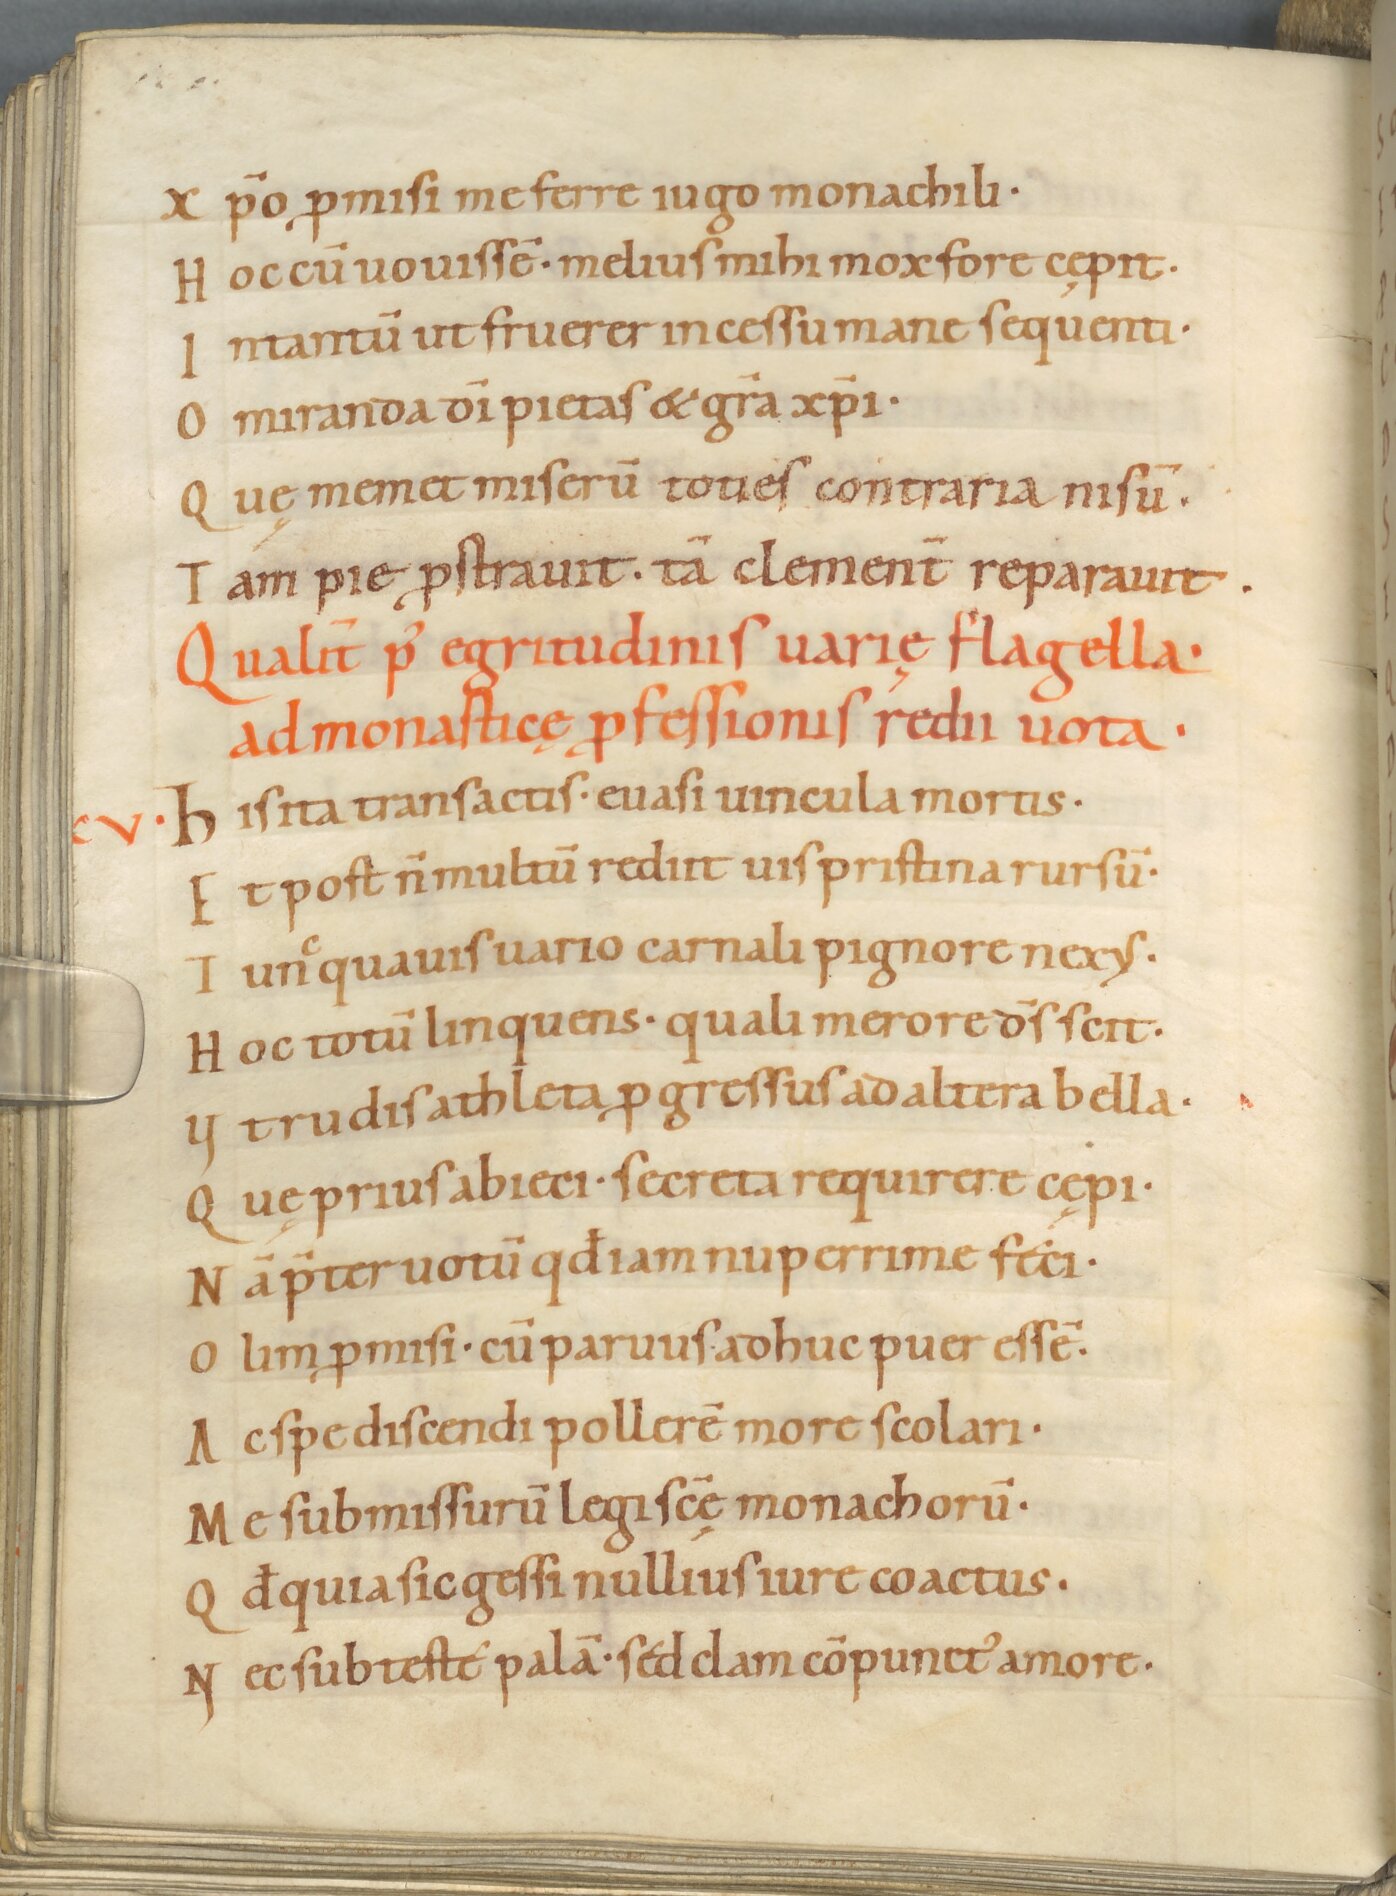 Xp̄o ꝓmisi me ferre iugo monachili·
Hoc cū uouissē· melius mihi mox fore cępit·
Intantū ut fruerer incessu mane sequenti·
O miranda dī pietas & gr̄a xp̄i·
Quę memet miserū toties contraria nisū·
Tam pie ꝓstrauit· tā clement̄ reparauit·
Qualit̄ p᷒ egritudinis uarię flagella·
ad monasticę ꝓfessionis redii uota·
xv· his ita transactis· euasi uincula mortis·
Et post n̄ multū rediit uis pristina rursū·
Tunc quauis uario carnali pignore nexus·
Hoc totū linquens· quali merore ds̄ scit·
Vt rudis athleta ꝓgressus ad altera bella·
Quę prius abieci· secreta requirere cępi·
Nā p̄ter uotū qđ iam nuperrime feci·
Olim ꝓmisi· cū paruus adhuc puer essē·
Ac spe discendi pollerē more scolari·
Me submissurū legi sc̄ę monachorū·
Qđ quia sic gessi nullius iure coactus·
Nec sub teste palā· sed clam cōpunct᷒ amore·